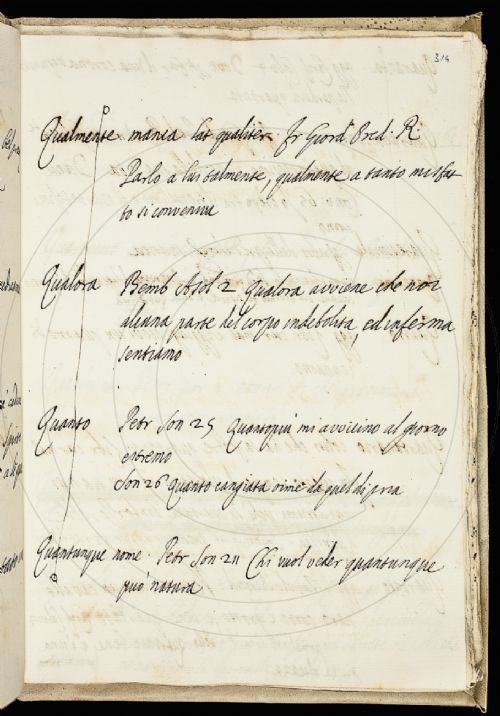 314
Qualmente manca lat qualiter. fr Giord. Pred. R.
Parlò a lui talmente, qualmente a tanto misfat
to si conveniva
Qualora Bemb Asol 2 Qualora avviene che noi
alcuna parte del corpo indebolita, ed inferma
sentiamo
Quanto Petr Son 25 Quanto più mi avvicino al giorno
estremo
Son 26 Quanto cangiata oimè da quel di pria
Quantunque nome. Petr Son 211 Chi vuol veder quantunque
può natura